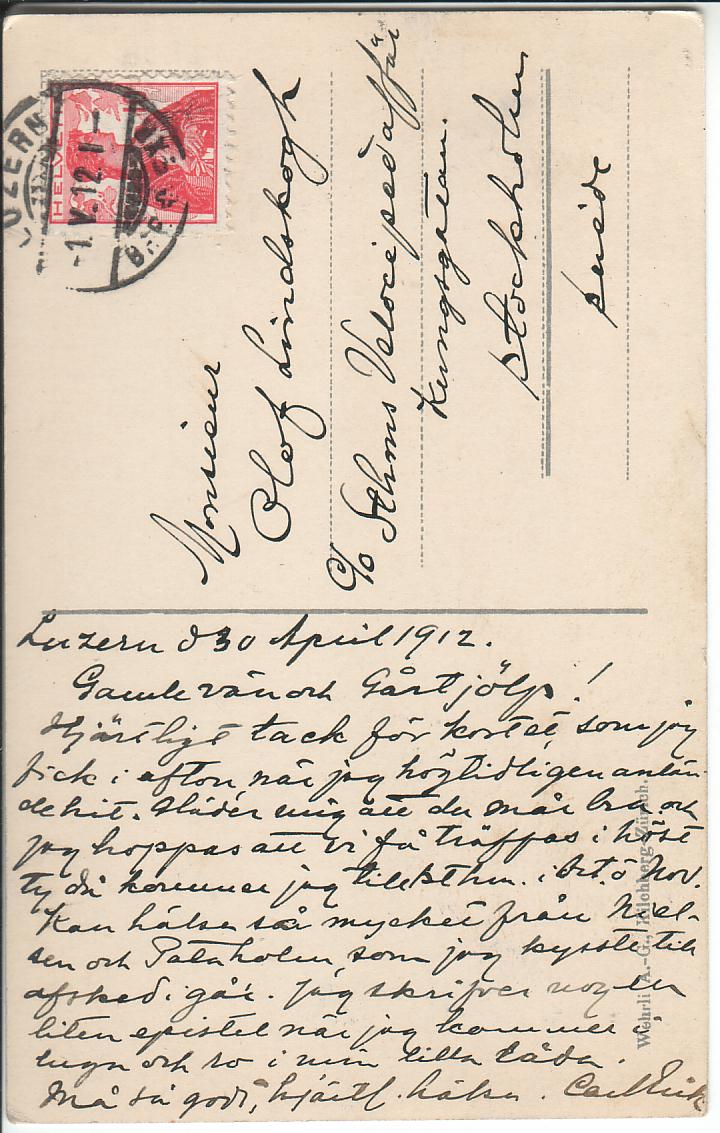 HELVETIA
LUZERN
-1.V.12.1-
BRF.
Monsieur
Olof Lindskogh
c/o Sthms Velocipedaffär
Kungsgatan.
Stockholm
Suède
Luzern d 30 April 1912.
Gamle vän och !
Hjärtligt tack för kortet, som jag
fick i afton, när jag högtidligen anlän-
de hit. Gläder mig att du mår bra och
jag hoppas att vi få träffas i höst
ty då kommer jag till Sthm. i Okt. o Nov.
Kan hälsa så mycket från Niel-
sen och som jag kysste till
afsked i går. Jag skrifver nog en
liten epistel när jag kommer i
lugn och ro i min lilla låda.
Må så godt, hjärtl. hälsn. Carl Erik
Wehrli A.-G., Kilchberg-Zürich.